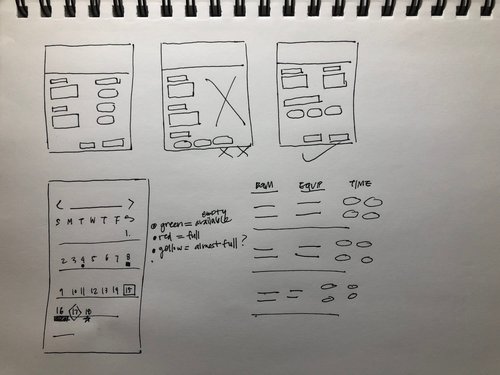 < >
S M T W T F S
1.
2 3 4 5 6 7 8
9 10 11 12 13 14 15
16 17 18
empty
green = available
red = full
yellow = almost full ?
ROOM EQUIP TIME